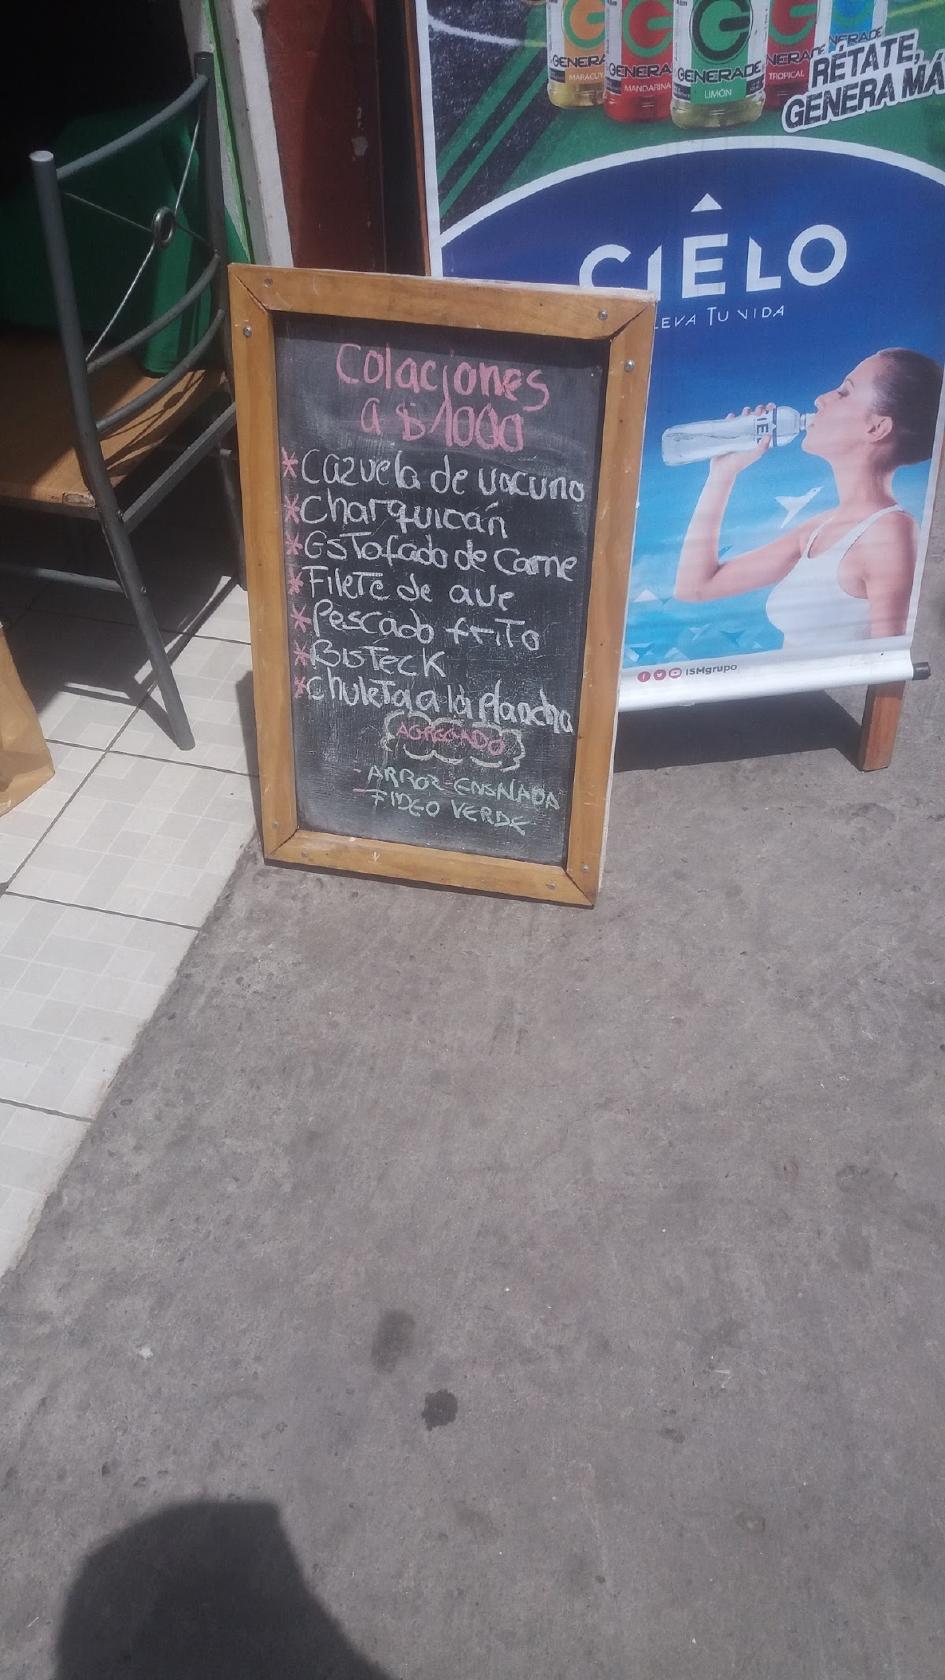 GENERADE GENERADE GENERADE GENERADE
MANDARINA LIMÓN TROPICAL
RÉTATE,
GENERA MÁ
CIELO
LEVA TU VIDA
Colaciones
a $1000
*Cazuela de vacuno
*Charquicán
*Estofado de Carne
*Filete de ave
*Pescado frito
*Bisteck
*Chuleta a la plancha
AGREGADO
-ARROZ-ENSALADA
-FIDEO VERDE
ISMgrupo